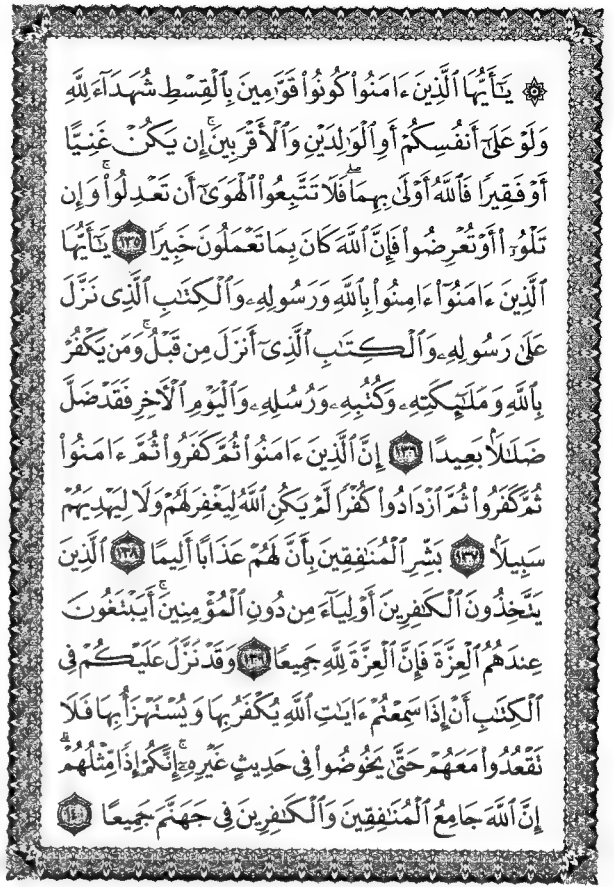 ۞ يَٰٓأَيُّهَا ٱلَّذِينَ ءَامَنُوا۟ كُونُوا۟ قَوَّٰمِينَ بِٱلْقِسْطِ شُهَدَآءَ لِلَّهِ
وَلَوْ عَلَىٰٓ أَنفُسِكُمْ أَوِ ٱلْوَٰلِدَيْنِ وَٱلْأَقْرَبِينَ ۚ إِن يَكُنْ غَنِيًّا
أَوْ فَقِيرًا فَٱللَّهُ أَوْلَىٰ بِهِمَا ۖ فَلَا تَتَّبِعُوا۟ ٱلْهَوَىٰٓ أَن تَعْدِلُوا۟ ۚ وَإِن
تَلْوُۥٓا۟ أَوْ تُعْرِضُوا۟ فَإِنَّ ٱللَّهَ كَانَ بِمَا تَعْمَلُونَ خَبِيرًا ١٣٥ يَٰٓأَيُّهَا
ٱلَّذِينَ ءَامَنُوٓا۟ ءَامِنُوا۟ بِٱللَّهِ وَرَسُولِهِۦ وَٱلْكِتَٰبِ ٱلَّذِى نَزَّلَ
عَلَىٰ رَسُولِهِۦ وَٱلْكِتَٰبِ ٱلَّذِىٓ أَنزَلَ مِن قَبْلُ ۚ وَمَن يَكْفُرْ
بِٱللَّهِ وَمَلَٰٓئِكَتِهِۦ وَكُتُبِهِۦ وَرُسُلِهِۦ وَٱلْيَوْمِ ٱلْءَاخِرِ فَقَدْ ضَلَّ
ضَلَٰلًۢا بَعِيدًا ١٣٦ إِنَّ ٱلَّذِينَ ءَامَنُوا۟ ثُمَّ كَفَرُوا۟ ثُمَّ ءَامَنُوا۟
ثُمَّ كَفَرُوا۟ ثُمَّ ٱزْدَادُوا۟ كُفْرًا لَّمْ يَكُنِ ٱللَّهُ لِيَغْفِرَ لَهُمْ وَلَا لِيَهْدِيَهُمْ
سَبِيلًۢا ١٣٧ بَشِّرِ ٱلْمُنَٰفِقِينَ بِأَنَّ لَهُمْ عَذَابًا أَلِيمًا ١٣٨ ٱلَّذِينَ
يَتَّخِذُونَ ٱلْكَٰفِرِينَ أَوْلِيَآءَ مِن دُونِ ٱلْمُؤْمِنِينَ ۚ أَيَبْتَغُونَ
عِندَهُمُ ٱلْعِزَّةَ فَإِنَّ ٱلْعِزَّةَ لِلَّهِ جَمِيعًا ١٣٩ وَقَدْ نَزَّلَ عَلَيْكُمْ فِى
ٱلْكِتَٰبِ أَنْ إِذَا سَمِعْتُمْ ءَايَٰتِ ٱللَّهِ يُكْفَرُ بِهَا وَيُسْتَهْزَأُ بِهَا فَلَا
تَقْعُدُوا۟ مَعَهُمْ حَتَّىٰ يَخُوضُوا۟ فِى حَدِيثٍ غَيْرِهِۦٓ ۚ إِنَّكُمْ إِذًا مِّثْلُهُمْ ۗ
إِنَّ ٱللَّهَ جَامِعُ ٱلْمُنَٰفِقِينَ وَٱلْكَٰفِرِينَ فِى جَهَنَّمَ جَمِيعًا ١٤٠